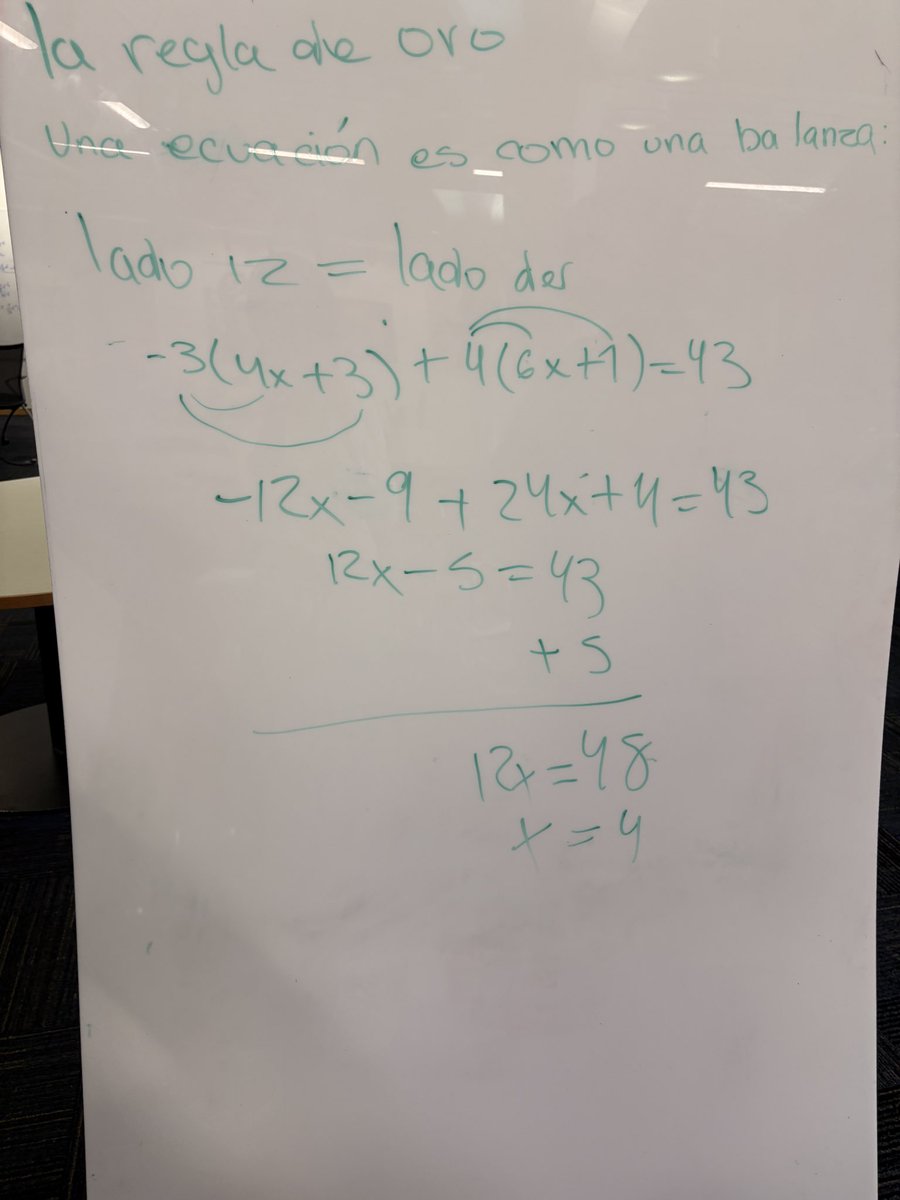 la regla de oro
Una ecuación es como una balanza:
lado iz = lado der
-3(4x+3) + 4(6x+1) = 43
-12x - 9 + 24x + 4 = 43
12x - 5 = 43
+ 5
12x = 48
x = 4